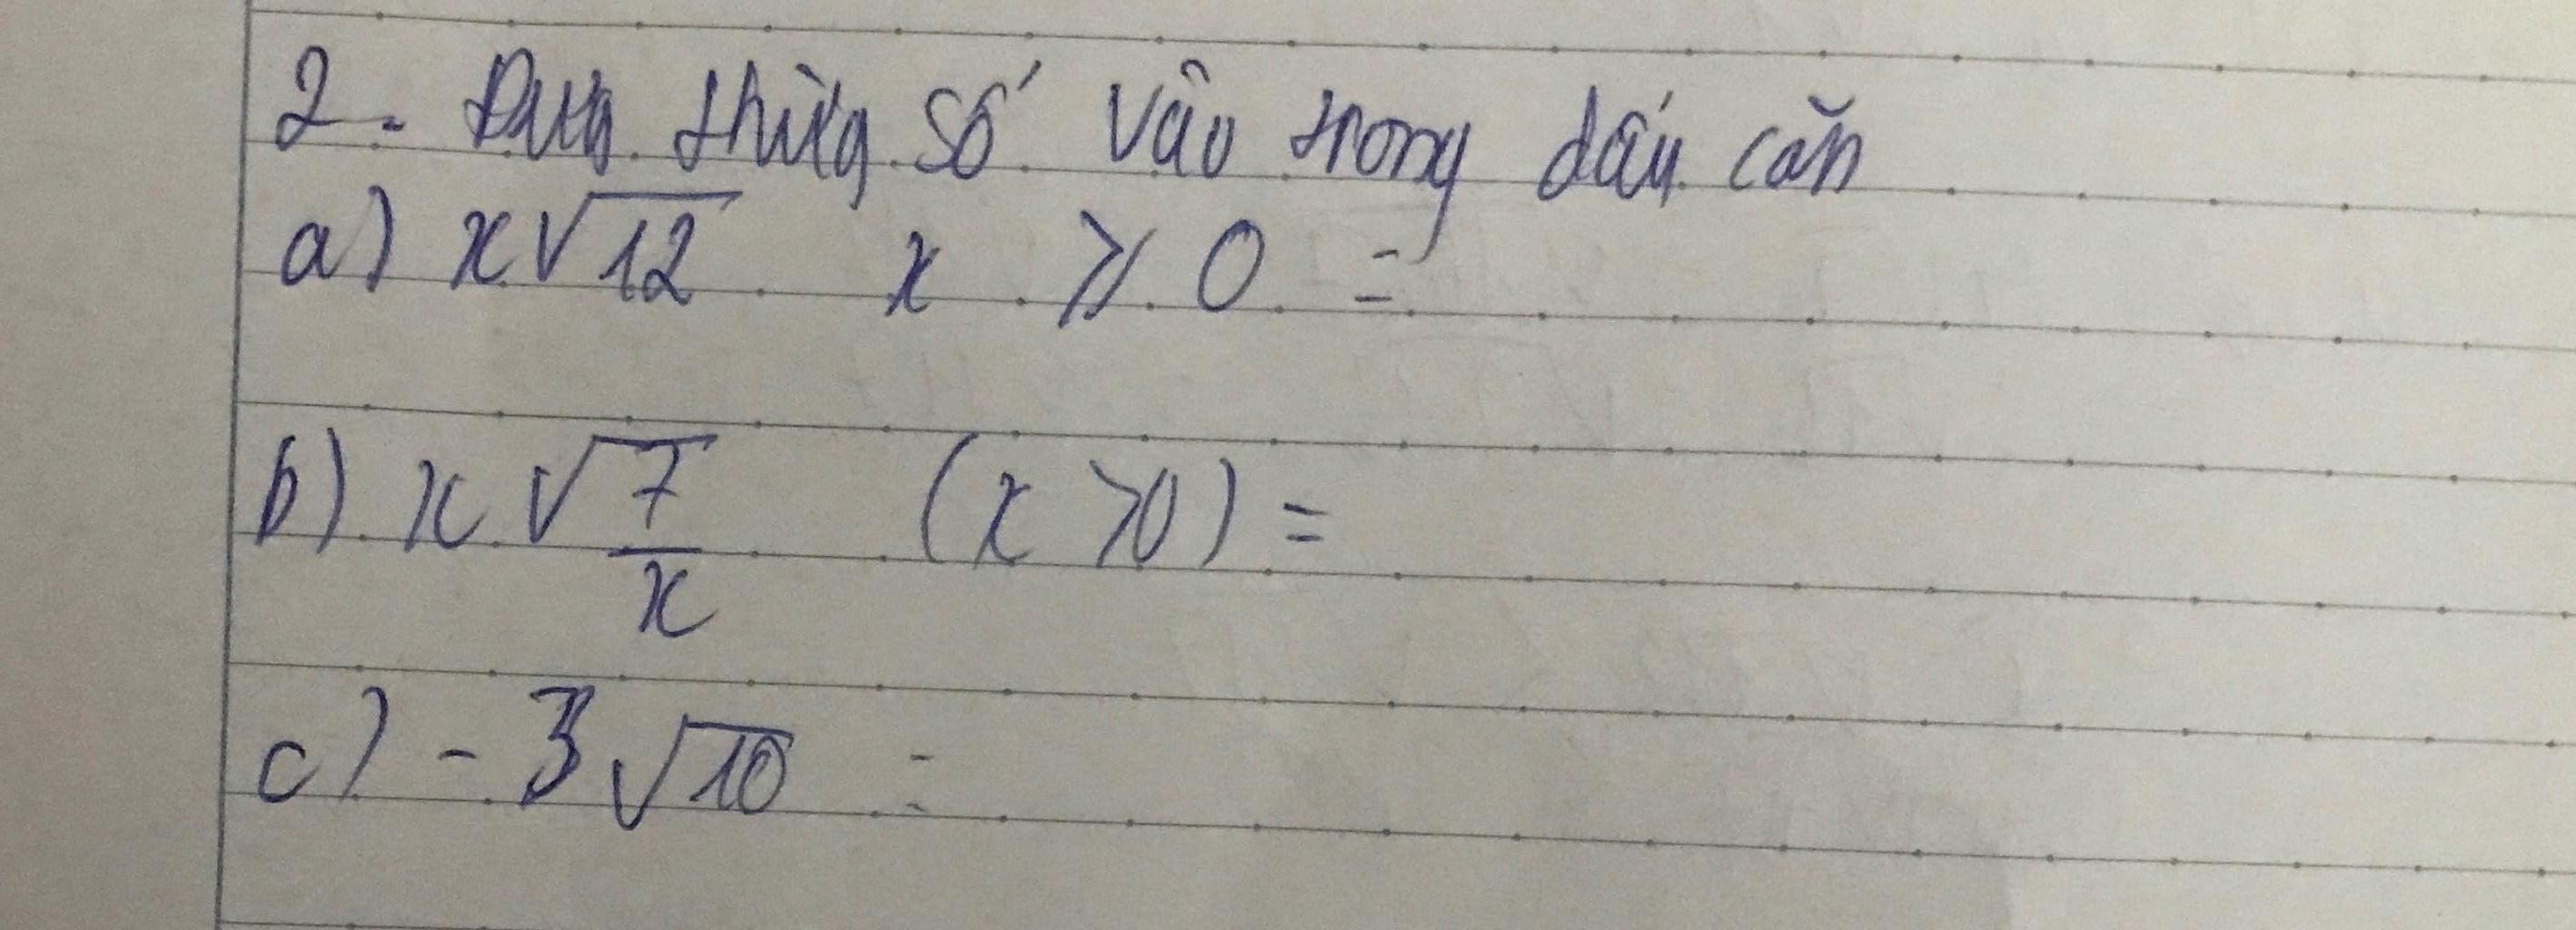 2. Đưa thừa số vào trong dấu căn
a) x√12 x ≥ 0 =
b) x √7/x (x > 0) =
c) - 3 √10 =